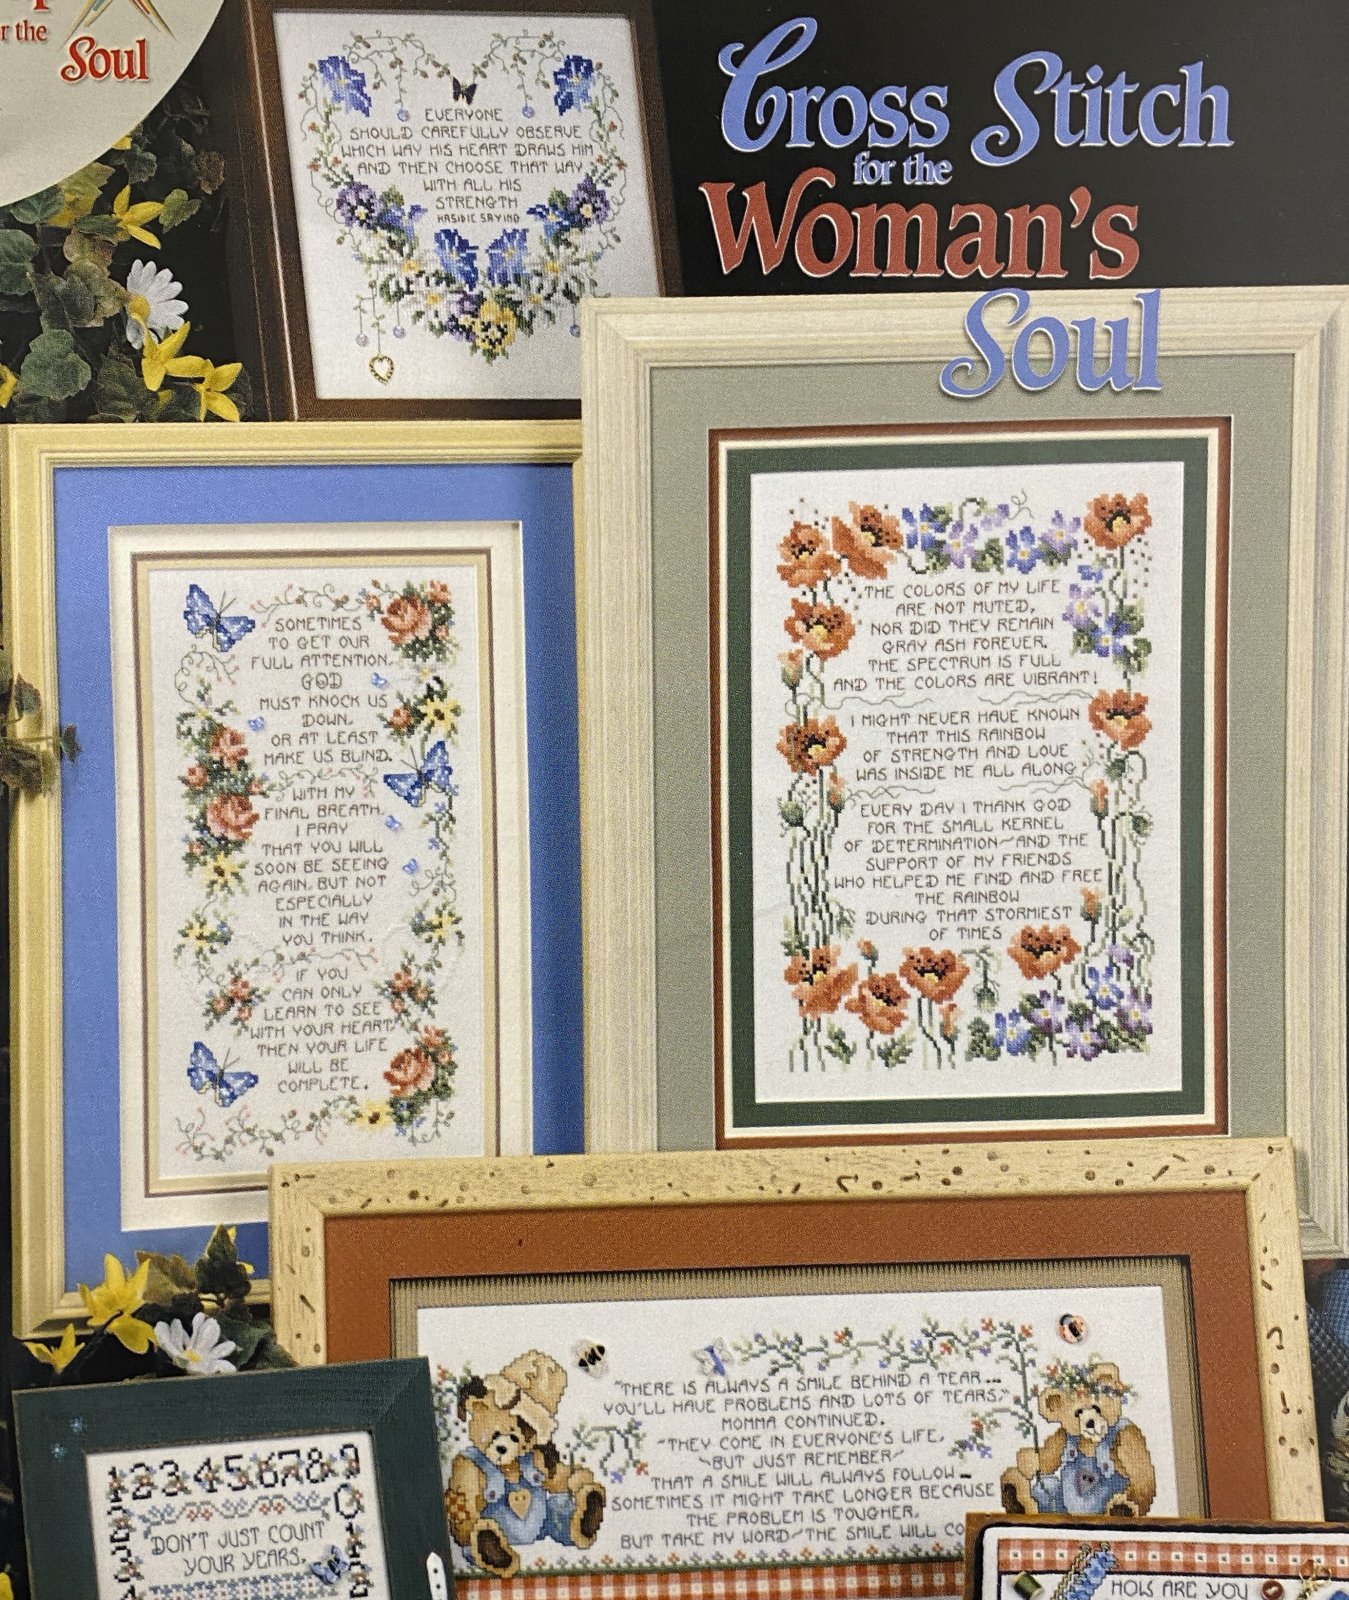 r the
Soul
Cross Stitch
for the
Woman's
Soul
EVERYONE
SHOULD CAREFULLY OBSERVE
WHICH WAY HIS HEART DRAWS HIM
AND THEN CHOOSE THAT WAY
WITH ALL HIS
STRENGTH
HASIDIC SAYING
SOMETIMES
TO GET OUR
FULL ATTENTION,
GOD
MUST KNOCK US
DOWN,
OR AT LEAST
MAKE US BLIND.
WITH MY
FINAL BREATH,
I PRAY
THAT YOU WILL
SOON BE SEEING
AGAIN, BUT NOT
ESPECIALLY
IN THE WAY
YOU THINK.
IF YOU
CAN ONLY
LEARN TO SEE
WITH YOUR HEART,
THEN YOUR LIFE
WILL BE
COMPLETE.
THE COLORS OF MY LIFE
ARE NOT MUTED,
NOR DID THEY REMAIN
GRAY ASH FOREVER.
THE SPECTRUM IS FULL
AND THE COLORS ARE VIBRANT!
I MIGHT NEVER HAVE KNOWN
THAT THIS RAINBOW
OF STRENGTH AND LOVE
WAS INSIDE ME ALL ALONG
EVERY DAY I THANK GOD
FOR THE SMALL KERNEL
OF DETERMINATION~AND THE
SUPPORT OF MY FRIENDS
WHO HELPED ME FIND AND FREE
THE RAINBOW
DURING THAT STORMIEST
OF TIMES
"THERE IS ALWAYS A SMILE BEHIND A TEAR...
YOU'LL HAVE PROBLEMS AND LOTS OF TEARS,"
MOMMA CONTINUED.
"THEY COME IN EVERYONE'S LIFE,
~BUT JUST REMEMBER~
THAT A SMILE WILL ALWAYS FOLLOW...
SOMETIMES IT MIGHT TAKE LONGER BECAUSE
THE PROBLEM IS TOUGHER.
BUT TAKE MY WORD~THE SMILE WILL CO
123456789
0
DON'T JUST COUNT
YOUR YEARS,
HOW ARE YOU